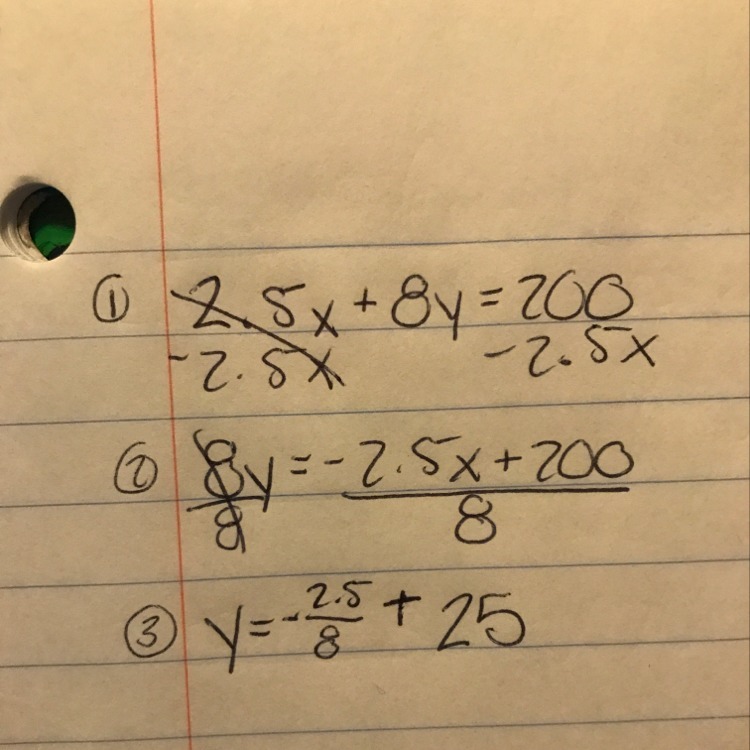 ① 2.5x + 8y = 200
-2.5x -2.5x
② 8y = -2.5x + 200
8 8
③ y = -2.5/8 + 25